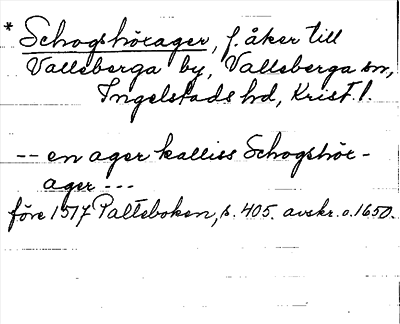 * Schogshörager, f. åker till
Valleberga by, Valleberga sn,
Ingelstads hd, Krist. l.
-- en ager kalliss Schogshör-
ager ---
före 1517 Palteboken, s. 405. avskr. o. 1650.